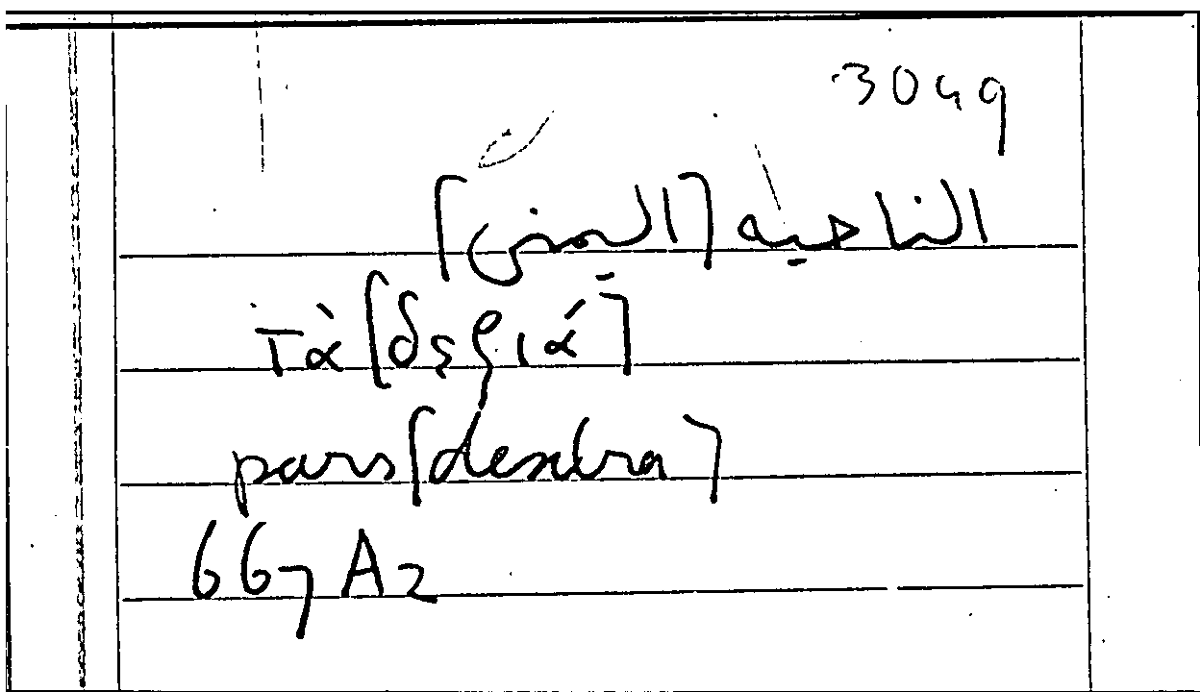 3049
الناحيه [اليمنى]
τὰ [δεξιά]
pars [dextra]
667 A2